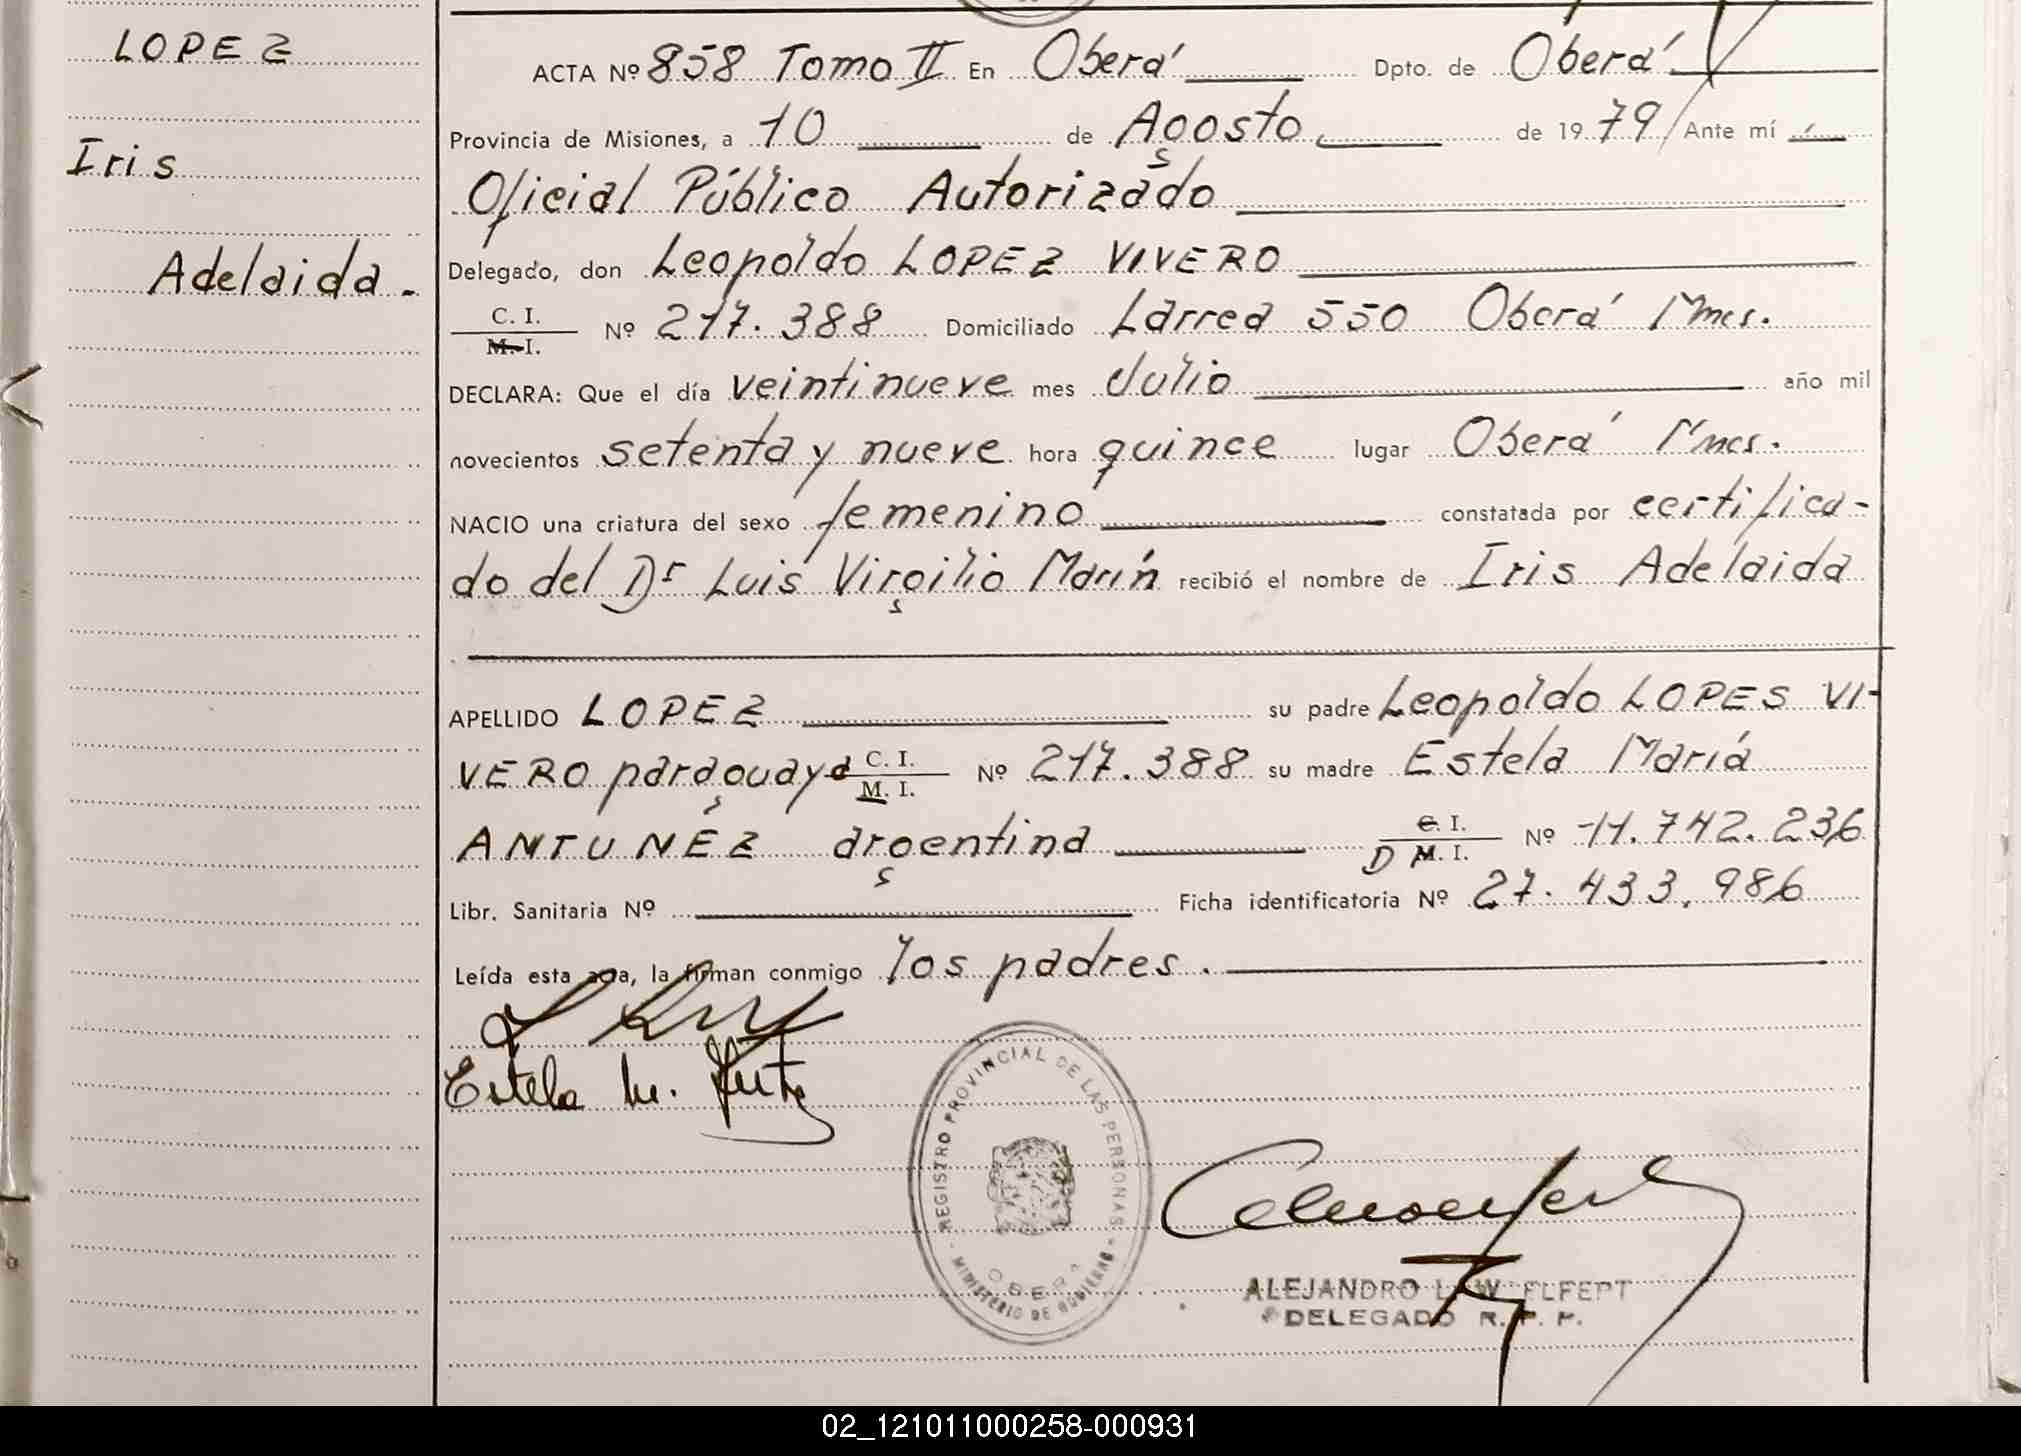 LOPEZ
Iris
Adelaida.
ACTA Nº 858 Tomo II En Oberá Dpto. de Oberá
Provincia de Misiones, a 10 de Agosto de 1979 Ante mí
Oficial Público Autorizado
Delegado, don Leopoldo LOPEZ VIVERO
C. I. / M. I. Nº 217.388 Domiciliado Larrea 550 Oberá Mnes.
DECLARA: Que el día veintinueve mes Julio año mil
novecientos setenta y nueve hora quince lugar Oberá Mnes.
NACIO una criatura del sexo femenino constatada por certifica-
do del Dr Luis Virgilio Marín recibió el nombre de Iris Adelaida
APELLIDO LOPEZ su padre Leopoldo LOPES VI-
VERO paraguayo C. I. / M. I. Nº 217.388 su madre Estela María
ANTUNEZ argentina C. I. / D M. I. Nº 11.742.236
Libr. Sanitaria Nº Ficha identificatoria Nº 27.433.986
Leída esta acta, la firman conmigo los padres.
Estela M.
REGISTRO PROVINCIAL DE LAS PERSONAS
- MINISTERIO DE GOBIERNO -
OBERA
ALEJANDRO
DELEGADO R. P. P.
02_121011000258-000931